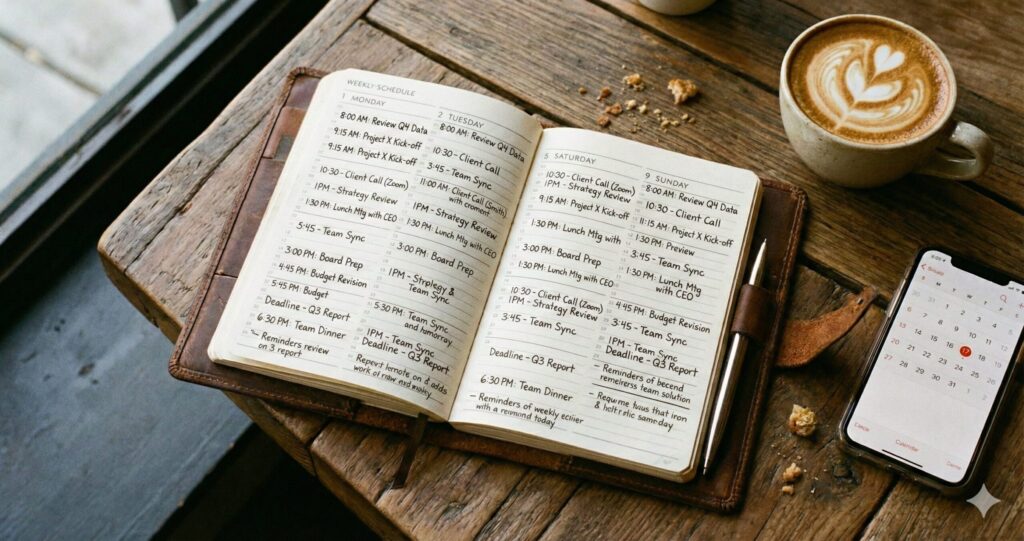 WEEKLY SCHEDULE
1 MONDAY
8:00 AM: Review Q4 Data
9:15 AM: Project X Kick-off
9:15 AM: Project X Kick-off
10:30 - Client Call (Zoom)
1PM - Strategy Review
1:30 PM: Lunch Mtg with CEO
5:45 - Team Sync
3:00 PM: Board Prep
4:45 PM: Budget Revision
5:45 PM: Budget
Deadline - Q3 Report
6:30 PM: Team Dinner
Reminders review
on 3 report
2 TUESDAY
8:00 AM: Review Q4 Data
10:30 - Client Call
3:45 - Team Sync
11:00 AM: Client Call (Smith)
with
1PM - Strategy Review
1:30 PM: Lunch Mtg with CEO
3:00 PM: Board Prep
1PM - &
Team Sync
5:30 PM: Team Sync
and
1PM - Team Sync
Deadline - Q3 Report
5 SATURDAY
10:30 - Client Call (Zoom)
1PM - Strategy Review
9:15 AM: Project X Kick-off
1:30 PM: Lunch Mtg with
3:00 PM: Board Prep
1:30 PM: Lunch Mtg with CEO
10:30 - Client Call (Zoom)
1PM - Strategy Review
3:45 - Team Sync
Deadline - Q3 Report
6:30 PM: Team Dinner
- Reminders of weekly
with a today
9 SUNDAY
8:00 AM: Review Q4 Data
10:30 - Client Call
11:15 AM: Project X Kick-off
1:30 PM: Preview
3:45 - Team Sync
1:30 PM: Lunch Mtg
with CEO
4:45 PM: Budget Revision
3:45 - Team Sync
1PM - Team Sync
Deadline - Q3 Report
- Reminders of
team solution
that iron
&